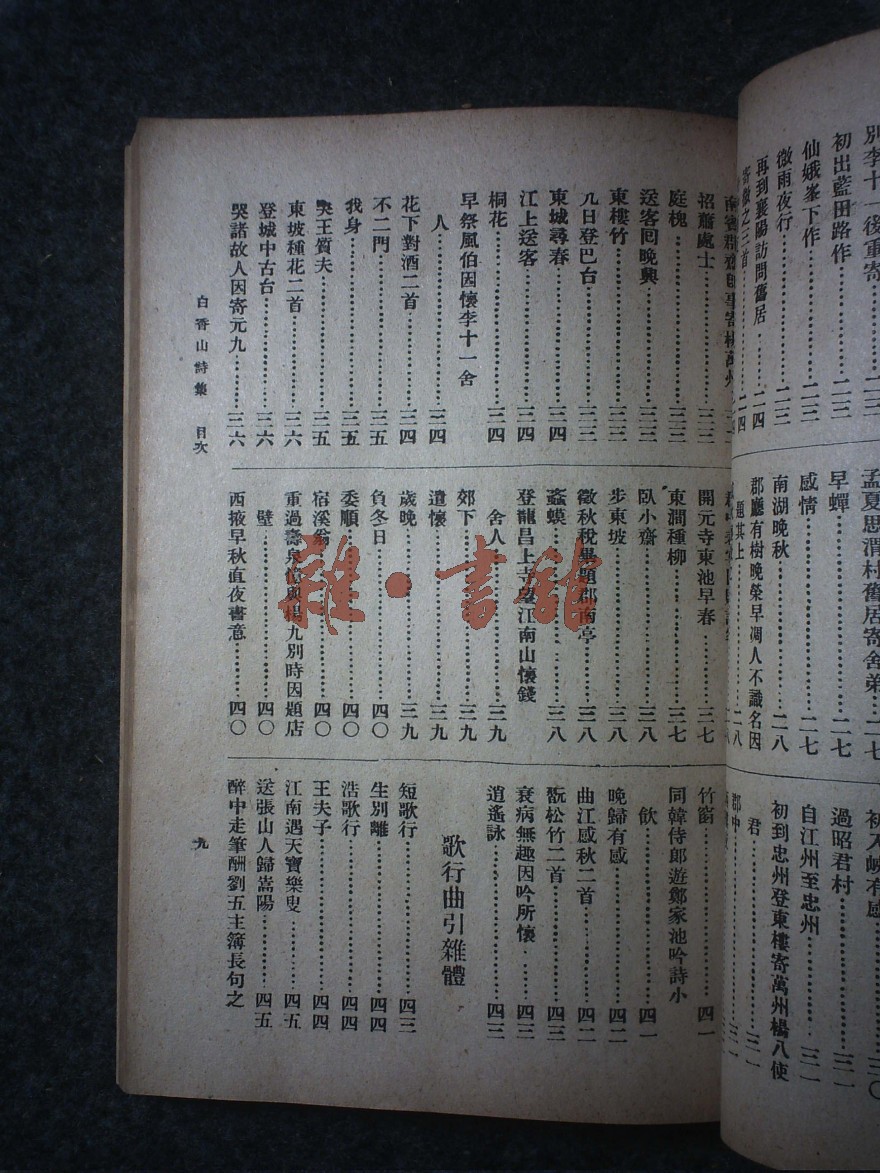 別李十一後重寄……二三
初出藍田路作……二三
仙娥峯下作……二三
微雨夜行……二三
再到襄陽訪問舊居……二四
寄微之三首……二四
孟夏思渭村舊居寄舍弟……二七
早蟬……二七
感情……二七
南湖晚秋……二八
郡廳有樹晚榮早凋人不識名因
題其上……二八
初入峽有感……三〇
過昭君村……三一
自江州至忠州……三一
初到忠州登東樓寄萬州楊八使
君……三一
郡中……三一
招蕭處士……三三
庭槐……三三
送客回晚興……三三
東樓竹……三三
九日登巴台……三三
東城尋春……三四
江上送客……三四
桐花……三四
早祭風伯因懷李十一舍
人……三四
花下對酒二首……三四
不二門……三五
我身……三五
哭王質夫……三五
東坡種花二首……三六
登城中古台……三六
哭諸故人因寄元九……三六
開元寺東池早春……三七
東澗種柳……三七
臥小齋……三八
步東坡……三八
徵秋稅畢題郡南亭……三八
蚊蟆……三八
登龍昌上寺望江南山懷錢
舍人……三九
郊下……三九
遣懷……三九
歲晚……三九
負冬日……四〇
委順……四〇
宿溪翁……四〇
重過壽泉憶與楊九別時因題店
壁……四〇
西掖早秋直夜書意……四〇
竹窗……四一
同韓侍郎遊鄭家池吟詩小
飲……四一
晚歸有感……四二
曲江感秋二首……四二
翫松竹二首……四三
衰病無趣因吟所懷……四三
逍遙詠……四三
歌行曲引雜體
短歌行……四三
生別離……四四
浩歌行……四四
王夫子……四四
江南遇天寶樂叟……四五
送張山人歸嵩陽……四五
醉中走筆酬劉五主簿長句之
白香山詩集 目次
九
雜·書館